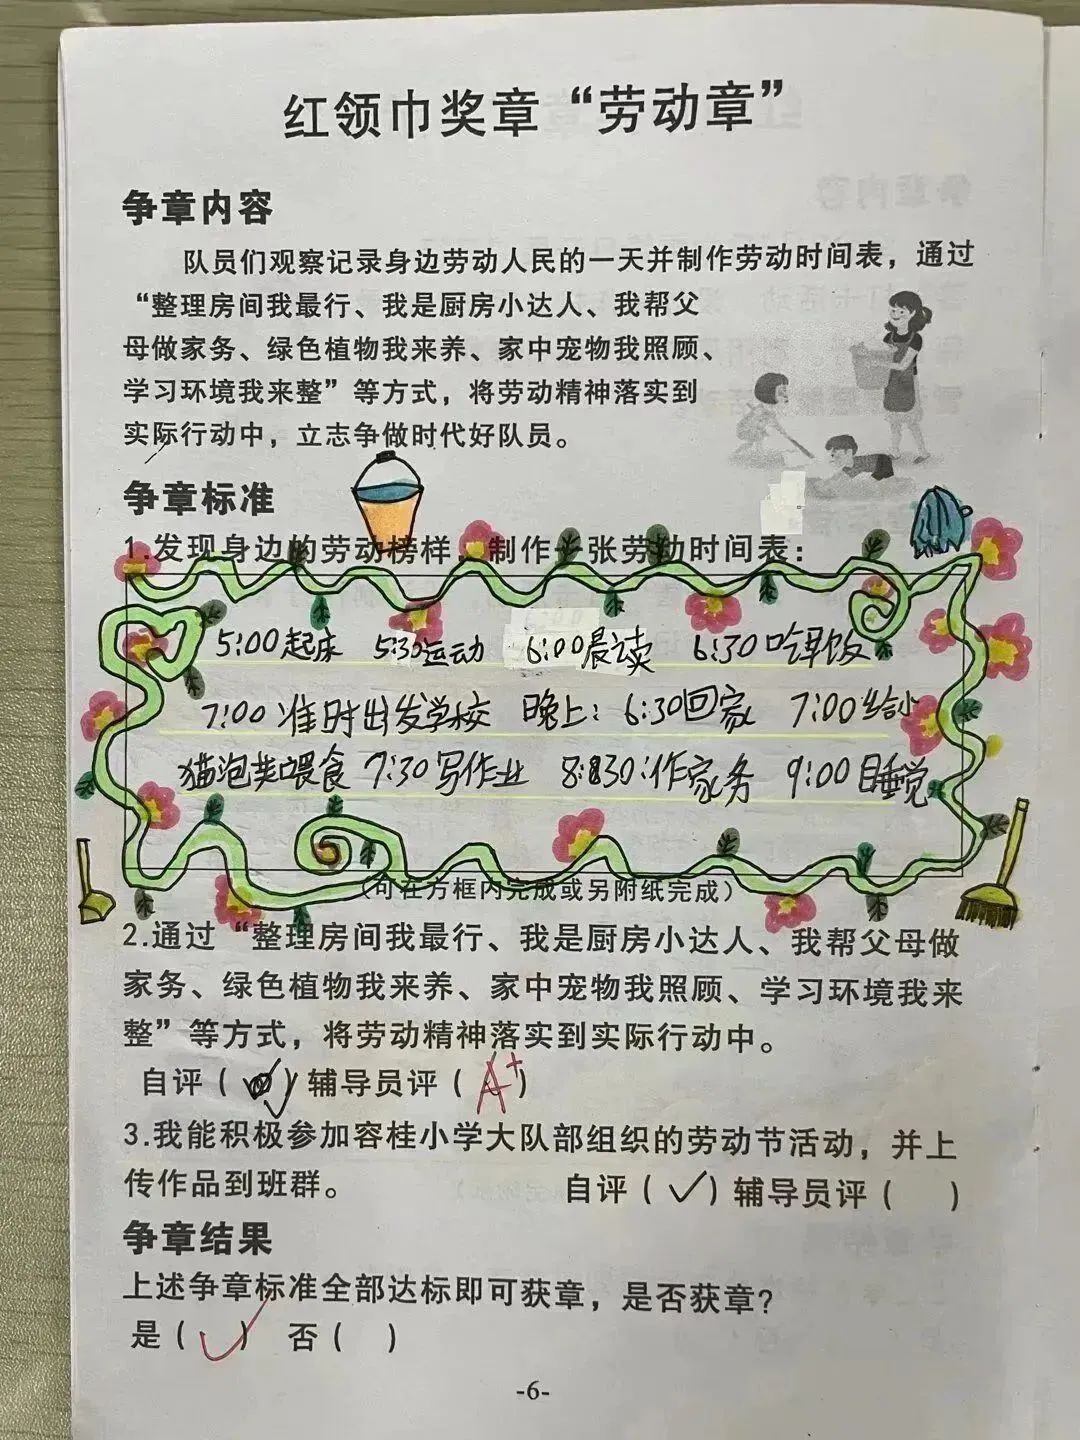 红领巾奖章“劳动章”
争章内容
队员们观察记录身边劳动人民的一天并制作劳动时间表，通过
“整理房间我最行、我是厨房小达人、我帮父
母做家务、绿色植物我来养、家中宠物我照顾、
学习环境我来整”等方式，将劳动精神落实到
实际行动中，立志争做时代好队员。
争章标准
1.发现身边的劳动榜样，制作一张劳动时间表：
5:00起床 5:30运动 6:00晨读 6:30吃早饭
7:00准时出发学校 晚上：6:30回家 7:00给小
猫泡粪喂食 7:30写作业 8:30:作家务 9:00睡觉
（可在方框内完成或另附纸完成）
2.通过“整理房间我最行、我是厨房小达人、我帮父母做
家务、绿色植物我来养、家中宠物我照顾、学习环境我来
整”等方式，将劳动精神落实到实际行动中。
自评（✓）辅导员评（A+）
3.我能积极参加容桂小学大队部组织的劳动节活动，并上
传作品到班群。 自评（✓）辅导员评（ ）
争章结果
上述争章标准全部达标即可获章，是否获章?
是（✓） 否（ ）
-6-